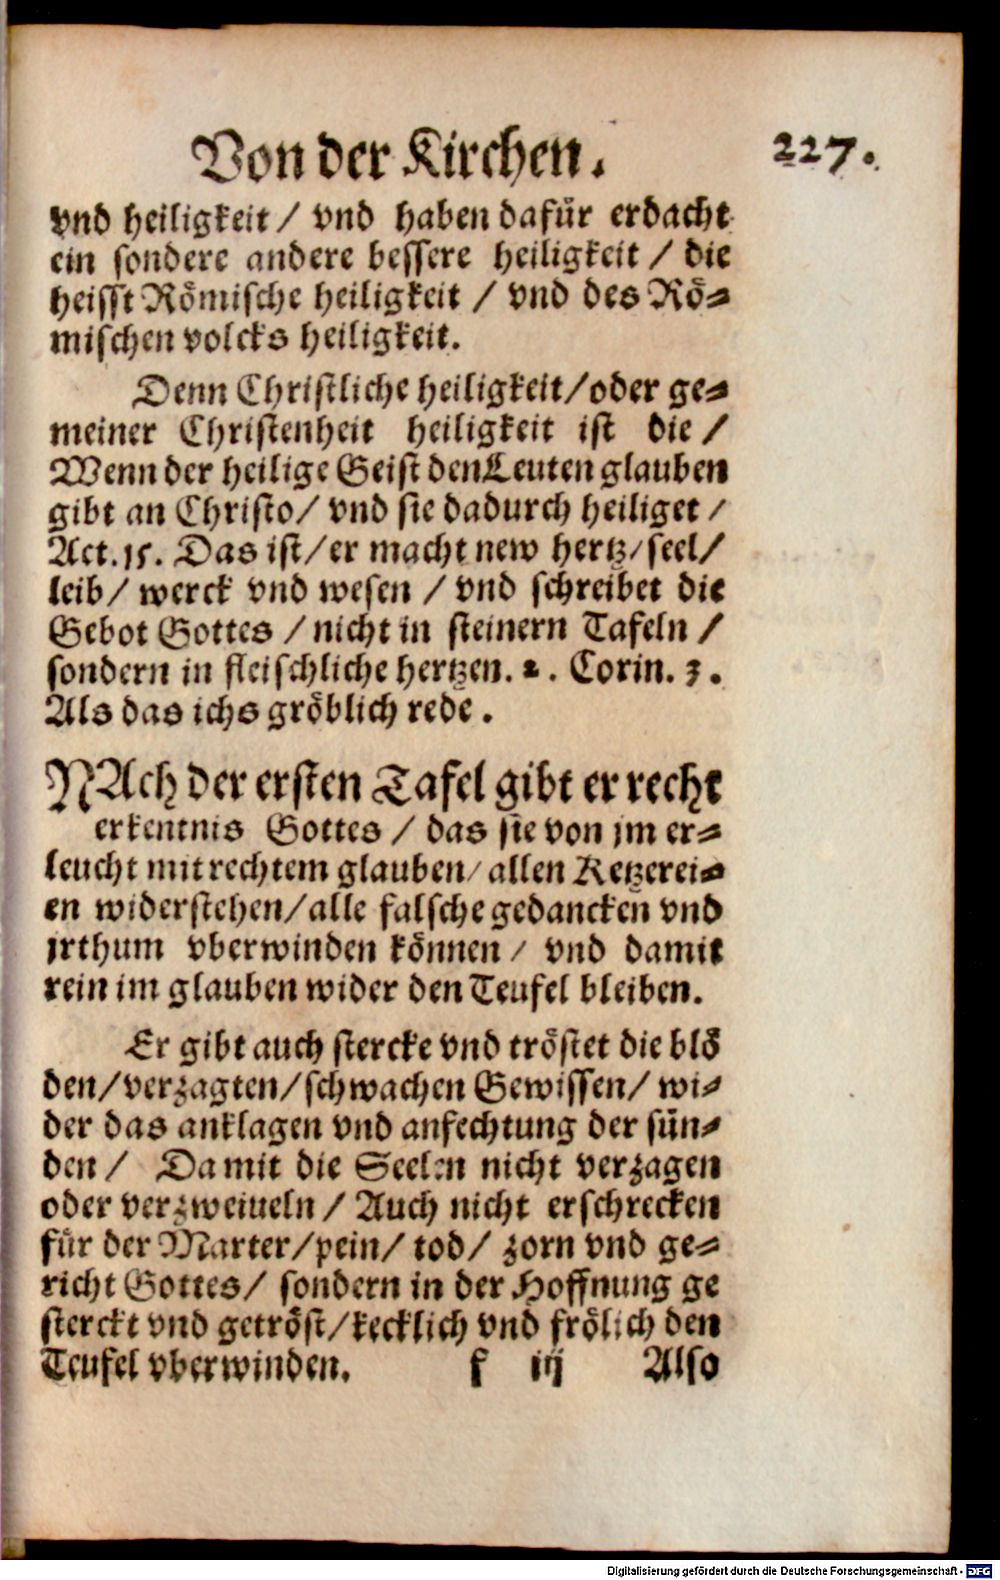 Von der Kirchen. 227.
vnd heiligkeit / vnd haben dafür erdacht
ein sondere andere bessere heiligkeit / die
heisst Römische heiligkeit / vnd des Rö-
mischen volcks heiligkeit.
Denn Christliche heiligkeit/oder ge-
meiner Christenheit heiligkeit ist die /
Wenn der heilige Geist den Leuten glauben
gibt an Christo/ vnd sie dadurch heiliget /
Act. 15. Das ist/ er macht new hertz/seel/
leib/ werck vnd wesen / vnd schreibet die
Gebot Gottes / nicht in steinern Tafeln /
sondern in fleischliche hertzen. 2. Corin. 3.
Als das ichs gröblich rede.
NAch der ersten Tafel gibt er recht
erkentnis Gottes / das sie von jm er-
leucht mit rechtem glauben/ allen Ketzerei-
en widerstehen/alle falsche gedancken vnd
jrthum vberwinden können / vnd damit
rein im glauben wider den Teufel bleiben.
Er gibt auch stercke vnd tröstet die blö
den/verzagten/schwachen Gewissen/ wi-
der das anklagen vnd anfechtung der sün-
den / Damit die Seelen nicht verzagen
oder verzweiueln / Auch nicht erschrecken
für der Marter/pein/ tod/ zorn vnd ge-
richt Gottes/ sondern in der Hoffnung ge
sterckt vnd getröst/kecklich vnd frölich den
Teufel vberwinden. f iij Also
Digitalisierung gefördert durch die Deutsche Forschungsgemeinschaft - DFG